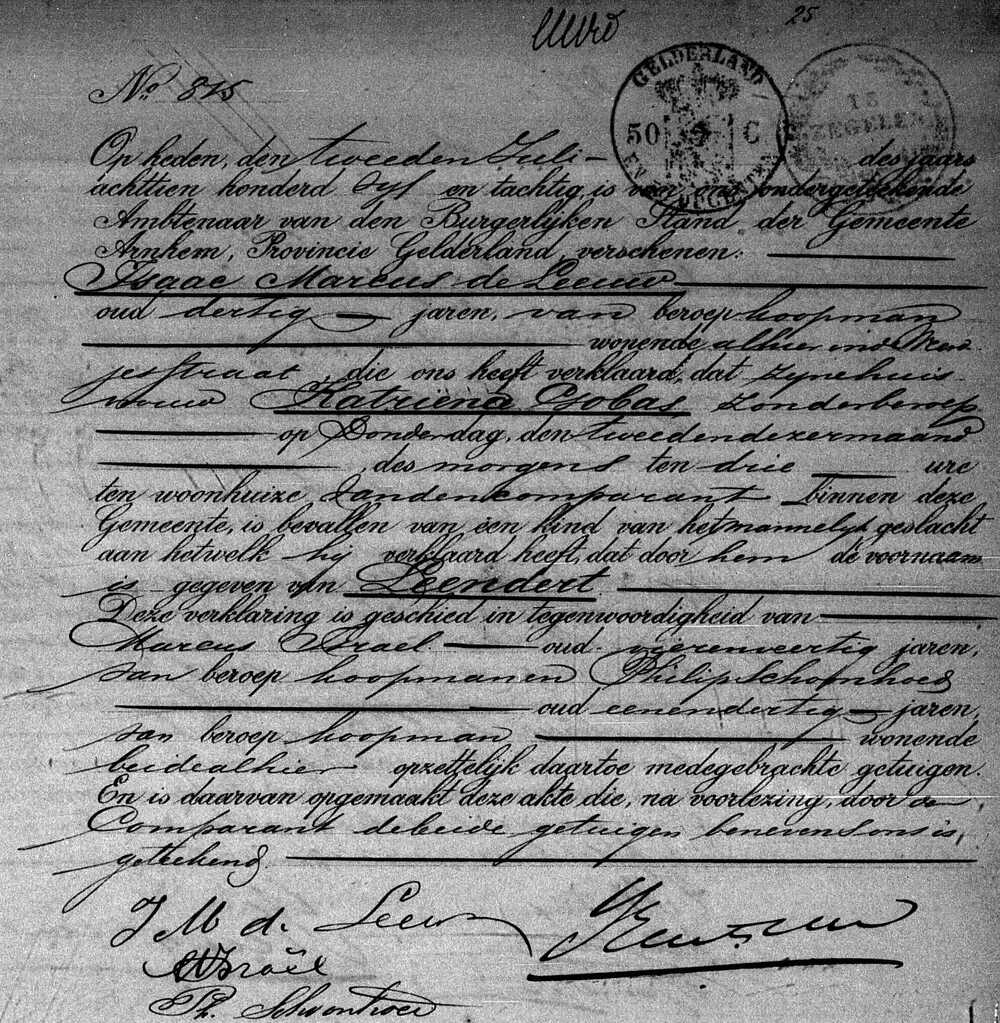 25
No 815
GELDERLAND
50 C
15
ZEGELEN
Op heden, den tweeden Juli des jaars
achttien honderd vyf en tachtig, is van ons ondergeteekende
Ambtenaar van den Burgerlijken Stand der Gemeente
Arnhem, Provincie Gelderland, verschenen:
Isaac Marcus de Leeuw
oud dertig jaren, van beroep koopman
wonende alhier in de
jesstraat, die ons heeft verklaard, dat zyne huis
vrouw Katriena Csobas zonder beroep
op Donderdag, den tweeden dezer maand
des morgens ten drie ure
ten woonhuize van den comparant binnen deze
Gemeente, is bevallen van een kind van het mannelyk geslacht
aan hetwelk hij verklaard heeft, dat door hem de voornaam
is gegeven van Leendert.
Deze verklaring is geschied in tegenwoordigheid van
Marcus Israel oud vierenveertig jaren,
van beroep koopman en Philip Schoonhoed
oud eenendertig jaren,
van beroep koopman wonende
beide alhier opzettelijk daartoe medegebrachte getuigen.
En is daarvan opgemaakt deze akte die, na voorlezing, door de
Comparant de beide getuigen benevens ons is,
geteekend.
J M de Leeuw
M Israël
Ph. Schoonhoed